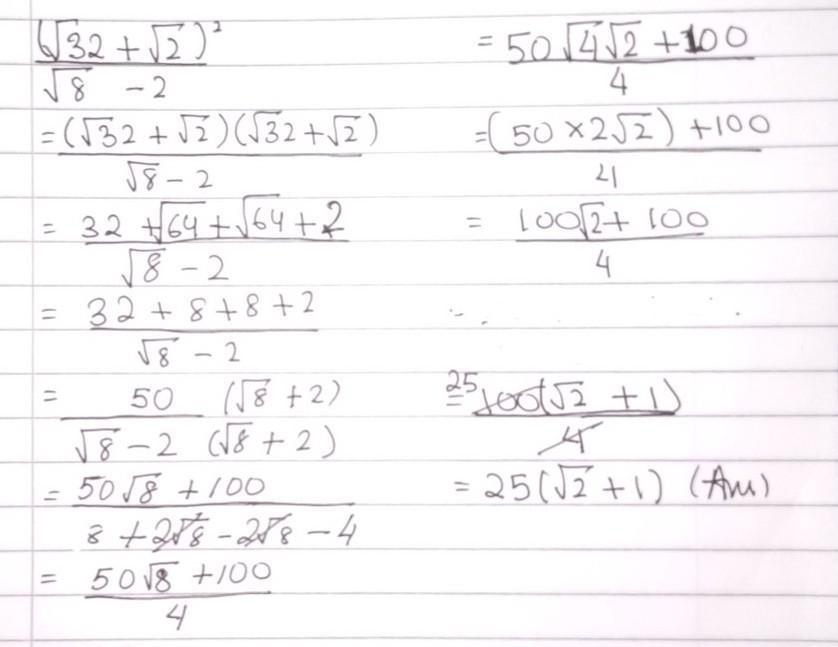 (√32 + √2)²
√8 - 2
= (√32 + √2)(√32 + √2)
√8 - 2
= 32 + √64 + √64 + 2
√8 - 2
= 32 + 8 + 8 + 2
√8 - 2
= 50 (√8 + 2)
√8 - 2 (√8 + 2)
= 50√8 + 100
8 + 2√8 - 2√8 - 4
= 50√8 + 100
4
= 50√4√2 + 100
4
= (50 × 2√2) + 100
4
= 100√2 + 100
4
= 25 100(√2 + 1)
4
= 25(√2 + 1) (Ans)